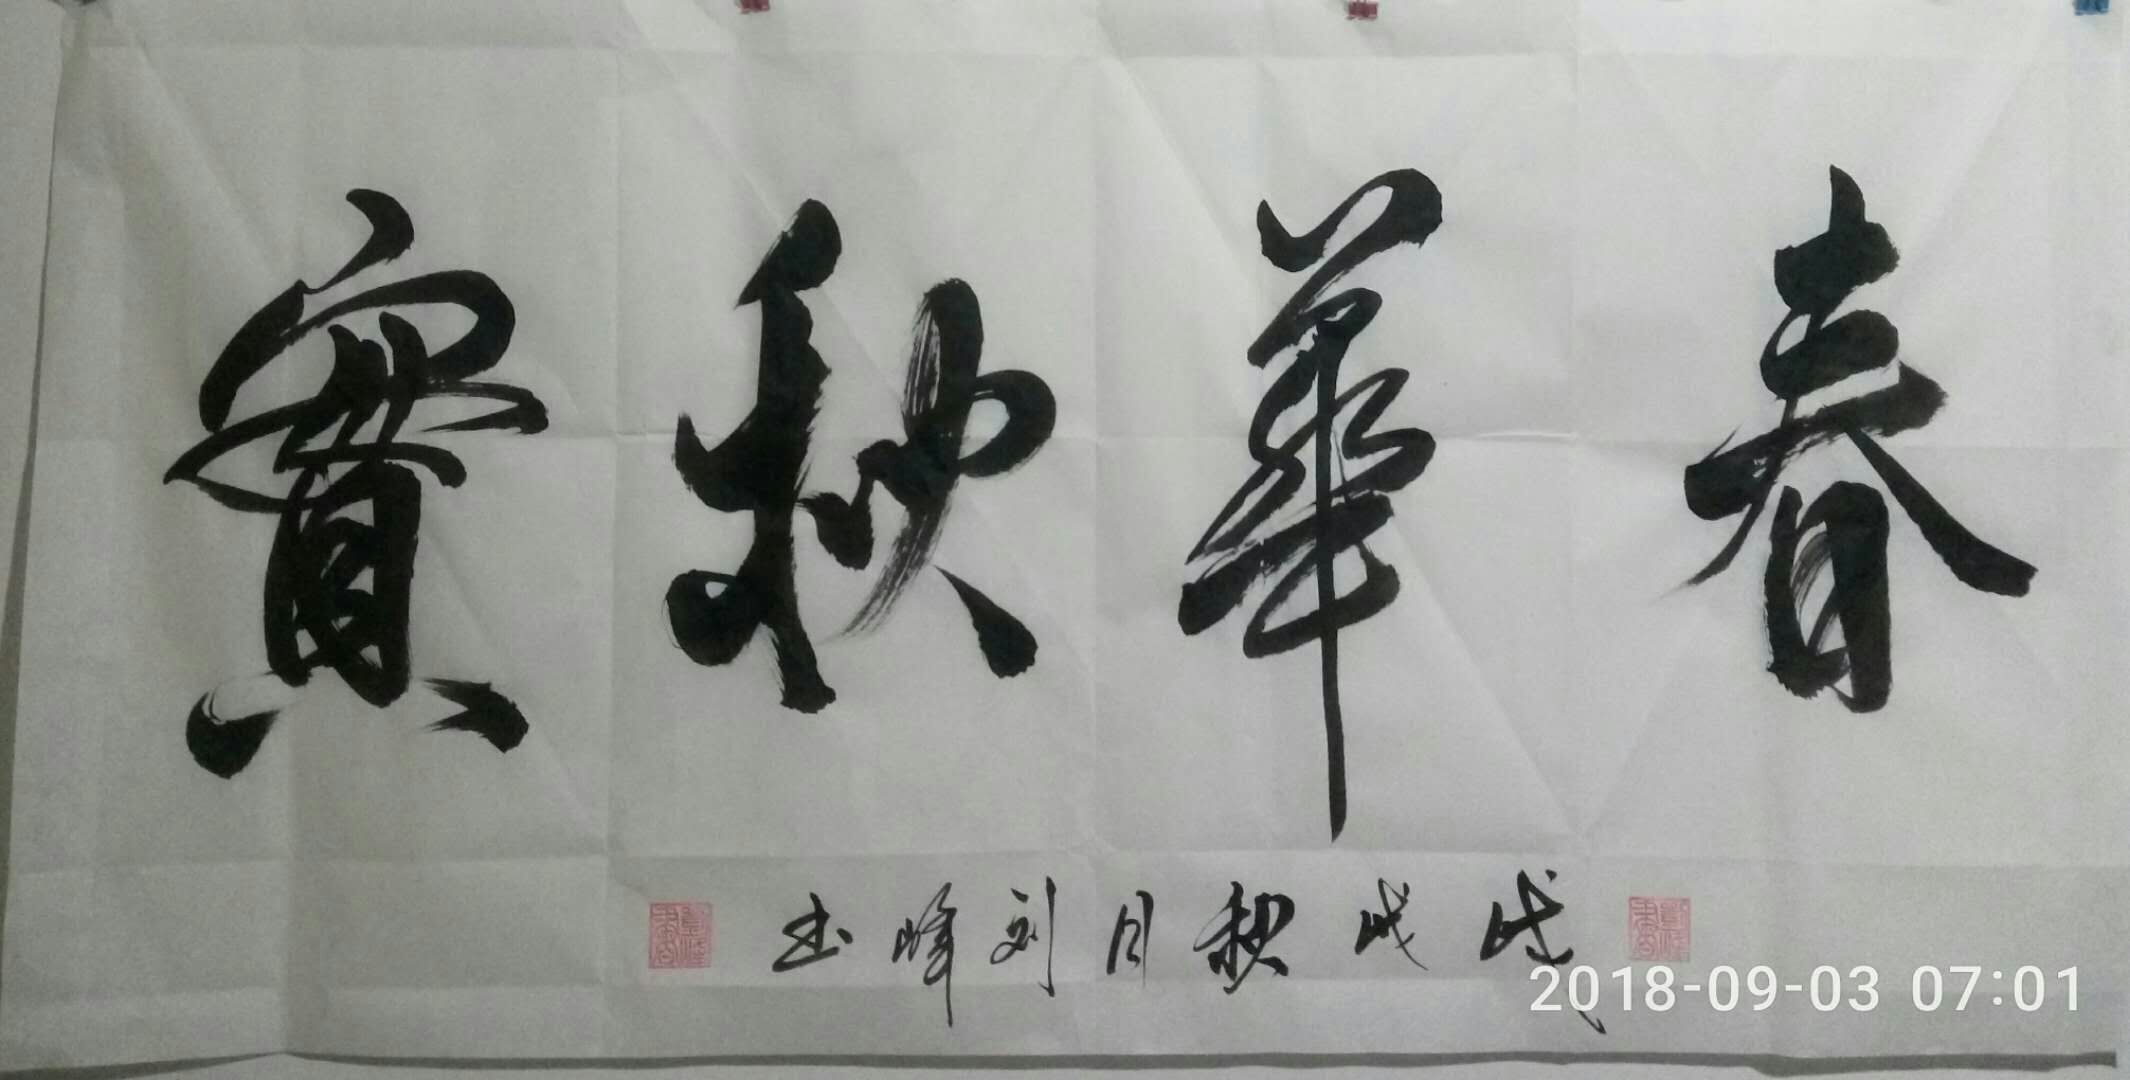 春華秋實
戊戌秋月刘峰书
2018-09-03 07:01